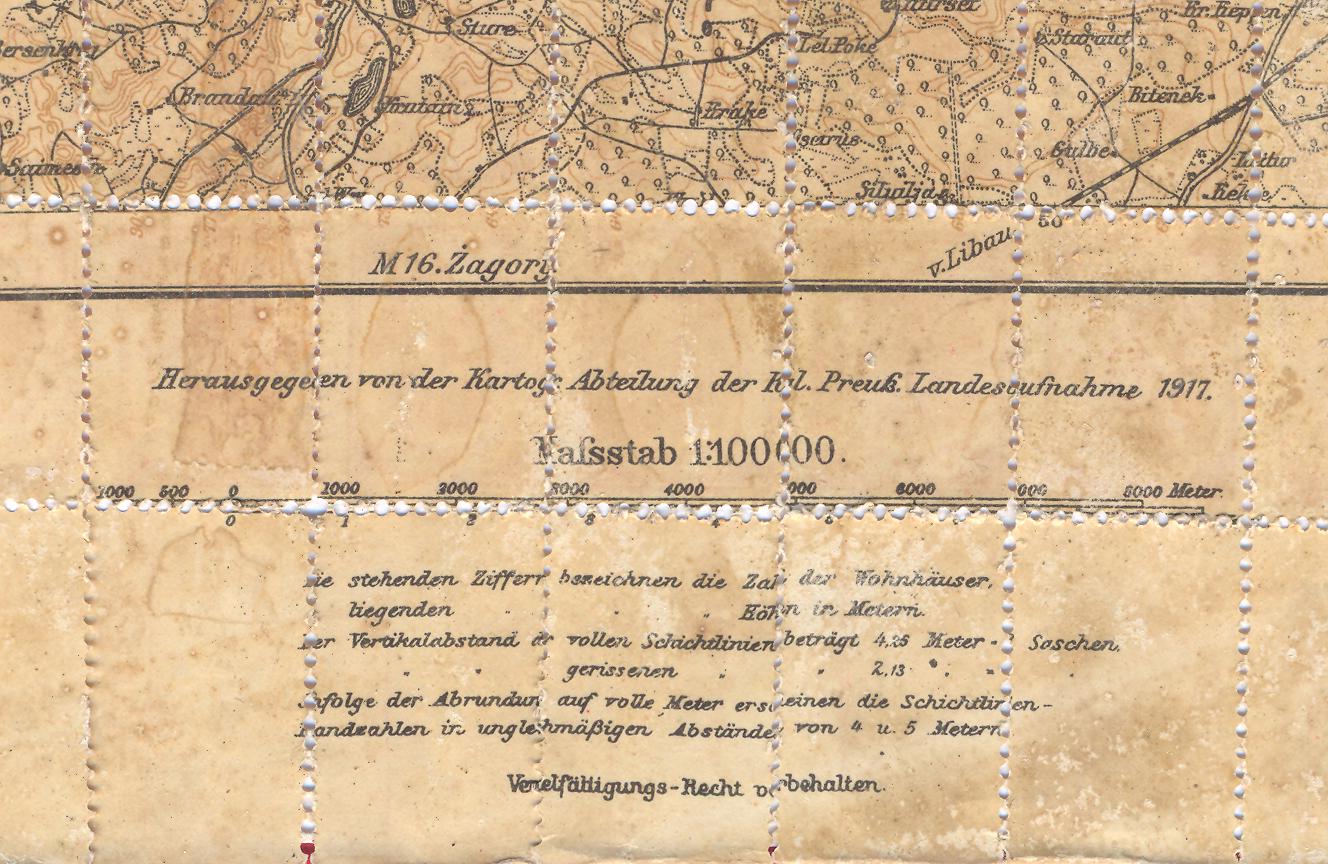 Sture
Lel.Poke
Staraut
Brandait
Brake
Bitenek
Gulbe
M16. Żagory
v. Libau
50
Herausgegeben von der Kartogr. Abteilung der Kgl. Preuß. Landesaufnahme 1917.
Maſsstab 1:100 000.
1000 500 0 1000 2000 3000 4000 5000 6000 7000 8000 Meter
0 1 2 3 4 5
Die stehenden Ziffern bezeichnen die Zahl der Wohnhäuser,
liegenden " " " Höhen in Metern.
Der Vertikalabstand der vollen Schichtlinien beträgt 4,25 Meter = 2 Saschen.
" " gerissenen " " 2,13 " "
Infolge der Abrundung auf volle Meter erscheinen die Schichtlinien-
Randzahlen in ungleichmäßigen Abständen von 4 u. 5 Metern
Vervielfältigungs-Recht vorbehalten.